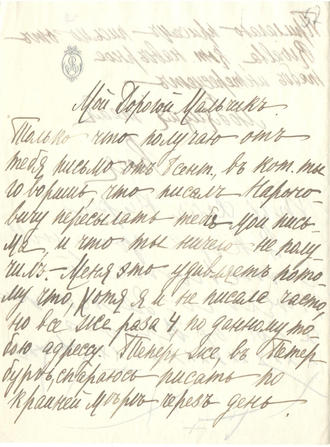 Мой Дорогой Мальчикъ.
Только что получаю отъ
тебя письмо отъ 8 сент., въ кот. ты
говоришь, что писалъ Нарыч-
овичу пересылать тебѣ мои пись-
ма, и что ты ничего не полу-
чилъ. – Меня это удивляетъ, пото-
му что, хотя я и не писала часто,
но все же раза 4 по данному то-
бою адрессу. Теперь же, въ Петер-
бургѣ, стараюсь писать по
крайней мѣрѣ черезъ день.